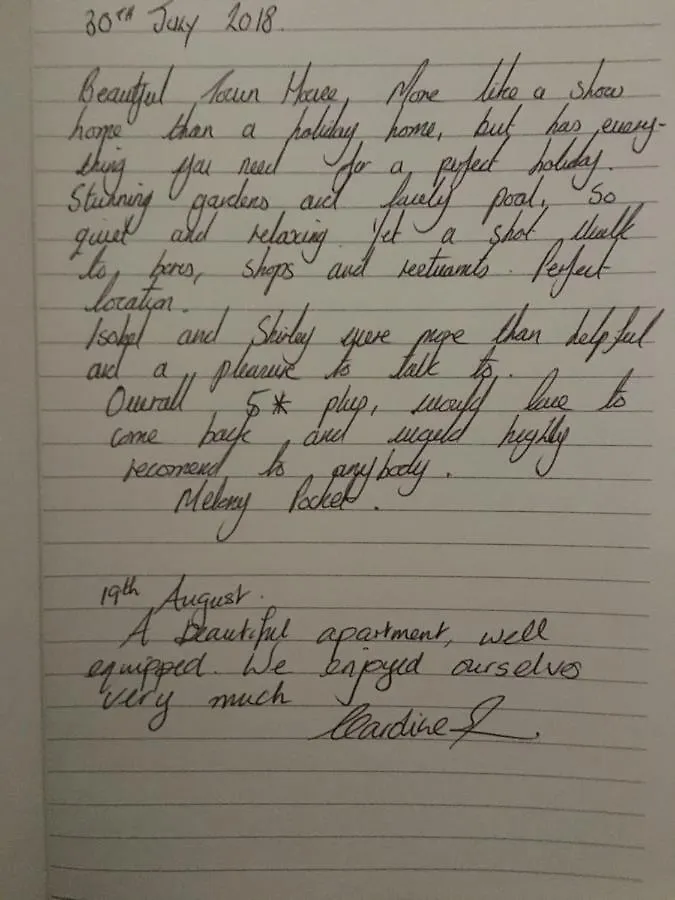 30TH July 2018.
Beautiful Town House, More like a show
home than a holiday home, but has every-
thing you need for a perfect holiday.
Stunning gardens and lovely pool, so
quiet and relaxing. Yet a shot walk
to, bars, shops and resturants. Perfect
location.
Isobel and Shirley were more than helpful
and a pleasure to talk to.
Overall 5* plus, would love to
come back and would highly
recomend to anybody.
Melony
19th August.
A beautiful apartment, well
equipped. We enjoyed ourselves
very much